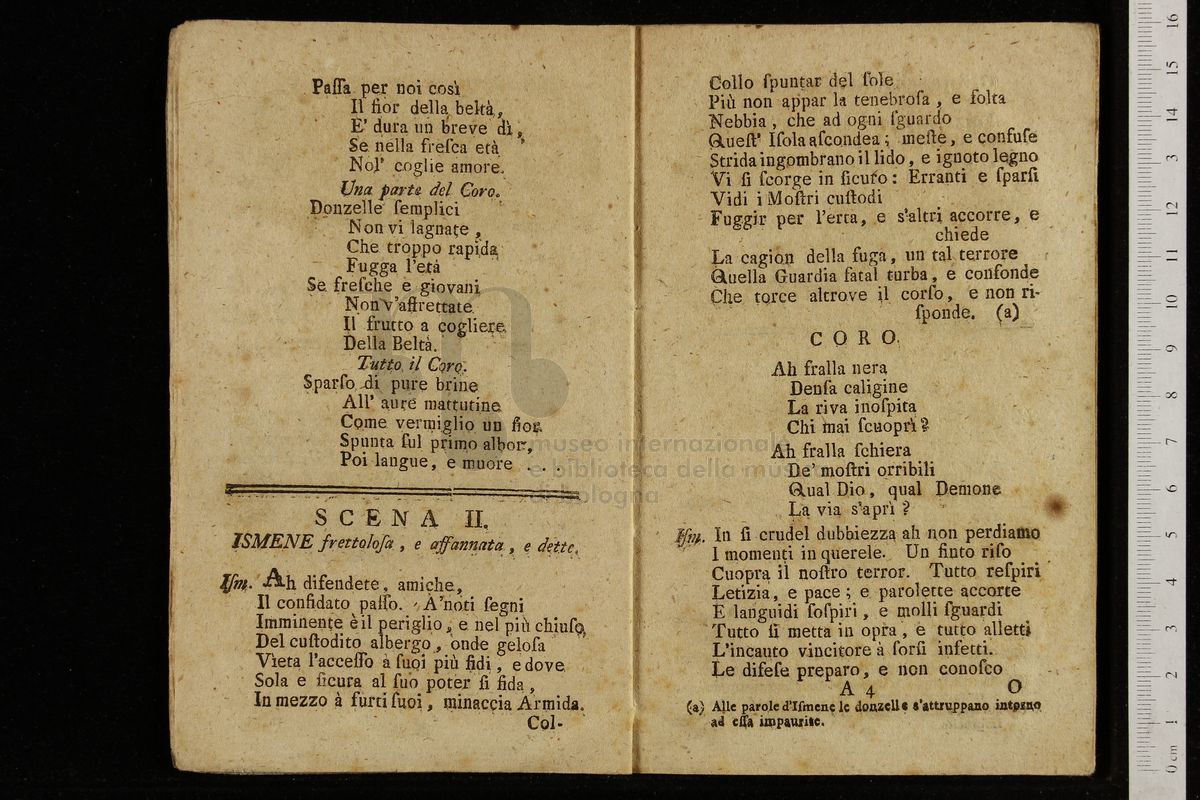 Paſſa per noi così
Il fior della beltà,
E' dura un breve dì,
Se nella freſca età
Nol' coglie amore.
Una parte del Coro.
Donzelle ſemplici
Non vi lagnate,
Che troppo rapida
Fugga l'età
Se freſche e giovani
Non v'affrettate
Il frutto a cogliere
Della Beltà.
Tutto il Coro.
Sparſo di pure brine
All' aure mattutine
Come vermiglio un fior
Spunta ſul primo albor,
Poi langue, e muore . . .
SCENA II.
ISMENE frettoloſa, e affannata, e dette.
Iſm. Ah difendete, amiche,
Il confidato paſſo. A'noti ſegni
Imminente è il periglio, e nel più chiuſo
Del cuſtodito albergo, onde geloſa
Vieta l'acceſſo à ſuoi più fidi, e dove
Sola e ſicura al ſuo poter ſi fida,
In mezzo à furti ſuoi, minaccia Armida.
Col-
Collo ſpuntar del ſole
Più non appar la tenebroſa, e folta
Nebbia, che ad ogni ſguardo
Queſt' Iſola aſcondea; meſte, e confuſe
Strida ingombrano il lido, e ignoto legno
Vi ſi ſcorge in ſicuro: Erranti e ſparſi
Vidi i Moſtri cuſtodi
Fuggir per l'erta, e s'altri accorre, e
chiede
La cagion della fuga, un tal terrore
Quella Guardia fatal turba, e confonde
Che torce altrove il corſo, e non ri-
ſponde. (a)
CORO.
Ah fralla nera
Denſa caligine
La riva inoſpita
Chi mai ſcuoprì?
Ah fralla ſchiera
De' moſtri orribili
Qual Dio, qual Demone
La via s'aprì?
Iſm. In ſi crudel dubbiezza ah non perdiamo
I momenti in querele. Un finto riſo
Cuopra il noſtro terror. Tutto reſpiri
Letizia, e pace; e parolette accorte
E languidi ſoſpiri, e molli ſguardi
Tutto ſi metta in opra, e tutto alletti
L'incauto vincitore à ſorſi infetti.
Le difeſe preparo, e non conoſco
A 4 O
(a) Alle parole d'Iſmene le donzelle s'attruppano intorno
ad eſſa impaurite.
museo internazionale
e biblioteca della musica
di bologna
0 cm 1 2 3 4 5 6 7 8 9 10 11 12 13 14 15 16